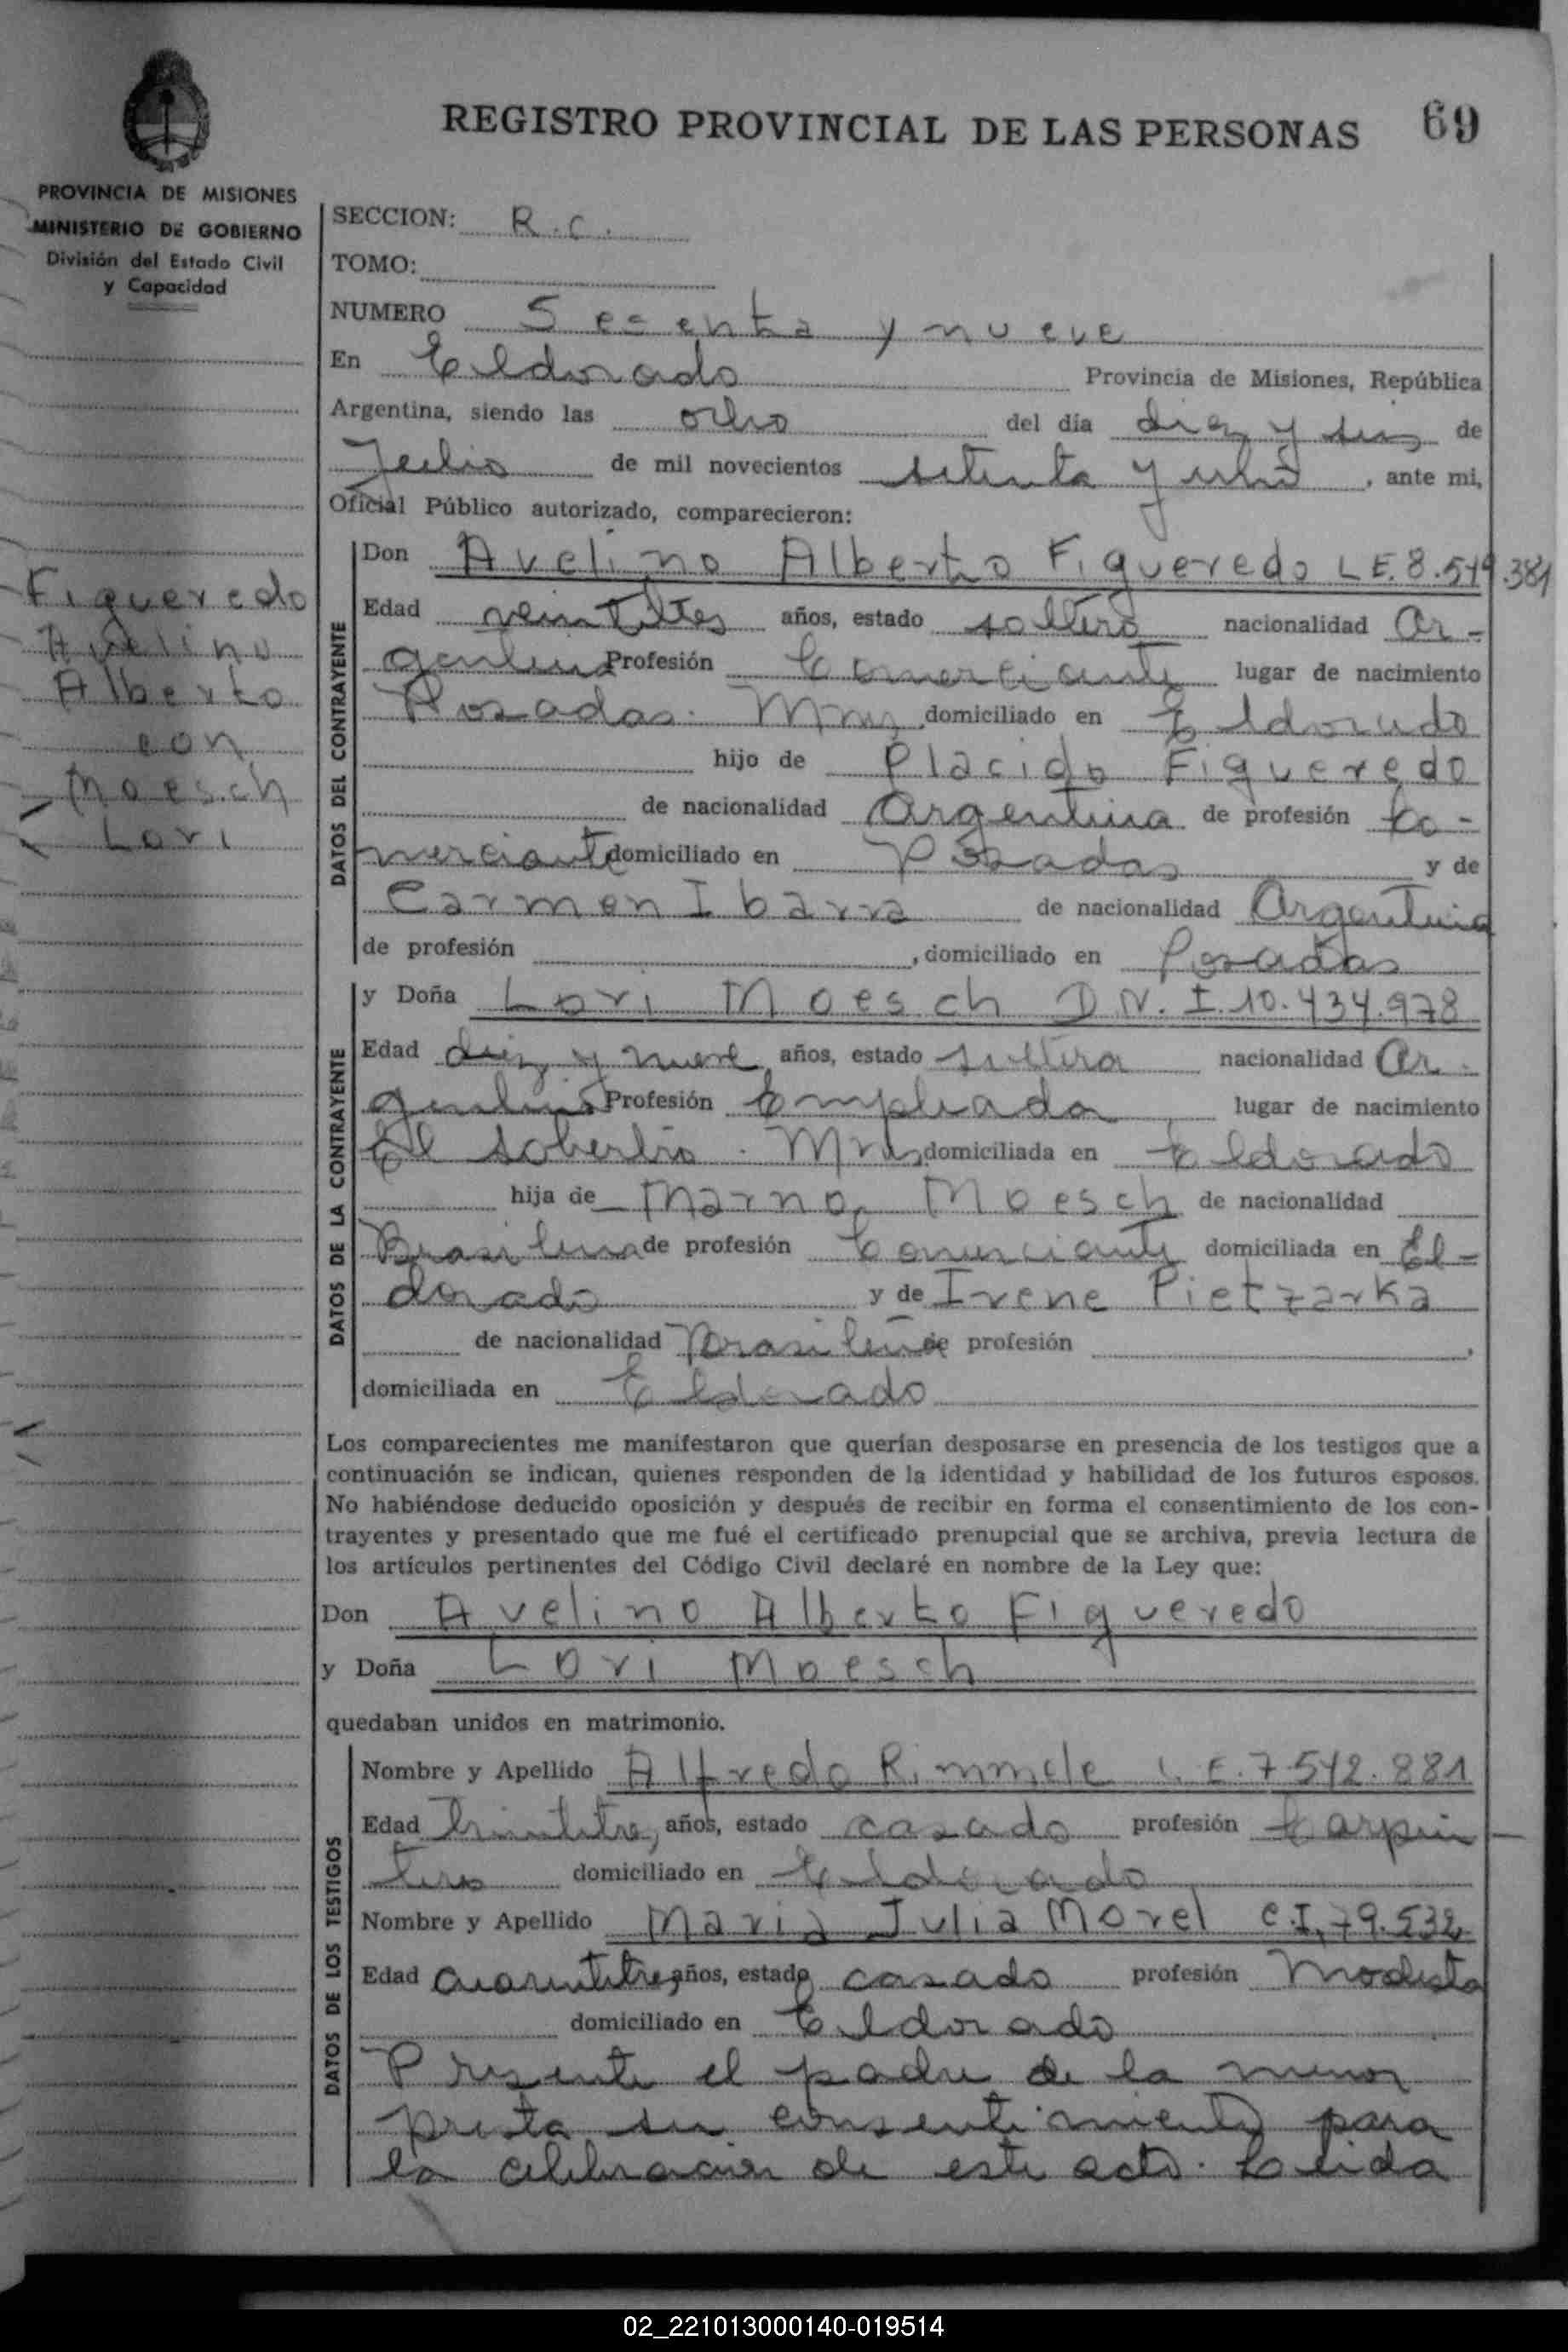 REGISTRO PROVINCIAL DE LAS PERSONAS 69
PROVINCIA DE MISIONES
MINISTERIO DE GOBIERNO
División del Estado Civil
y Capacidad
SECCION: R.C.
TOMO:
NUMERO Sesenta y nueve
En Eldorado Provincia de Misiones, República
Argentina, siendo las ocho del día diez y seis de
Julio de mil novecientos setenta y uno, ante mi,
Oficial Público autorizado, comparecieron:
Figueredo
Avelino
Alberto
con
Moesch
Lori
DATOS DEL CONTRAYENTE
Don Avelino Alberto Figueredo L E. 8.549.381
Edad veintitres años, estado soltero nacionalidad Ar-
gentina Profesión Comerciante lugar de nacimiento
Posadas. Mnes, domiciliado en Eldorado
hijo de Placido Figueredo
de nacionalidad Argentina de profesión Co-
merciante domiciliado en Posadas y de
Carmen Ibarra de nacionalidad Argentina
de profesión , domiciliado en Posadas
DATOS DE LA CONTRAYENTE
y Doña Lori Moesch D.N.I. 10.434.978
Edad diez y nueve años, estado soltera nacionalidad Ar-
gentina Profesión Empleada lugar de nacimiento
El Soberbio. Mnes, domiciliada en Eldorado
hija de Marno Moesch de nacionalidad
Brasilena de profesión Comerciante domiciliada en El-
dorado y de Irene Pietzarka
de nacionalidad Brasileña de profesión ,
domiciliada en Eldorado
Los comparecientes me manifestaron que querían desposarse en presencia de los testigos que a
continuación se indican, quienes responden de la identidad y habilidad de los futuros esposos.
No habiéndose deducido oposición y después de recibir en forma el consentimiento de los con-
trayentes y presentado que me fué el certificado prenupcial que se archiva, previa lectura de
los artículos pertinentes del Código Civil declaré en nombre de la Ley que:
Don Avelino Alberto Figueredo
y Doña Lori Moesch
quedaban unidos en matrimonio.
DATOS DE LOS TESTIGOS
Nombre y Apellido Alfredo Rimmele L.E. 7.542.881
Edad treintitres, años, estado casado profesión Carpin-
tero domiciliado en Eldorado
Nombre y Apellido Maria Julia Morel C.I. 79.532
Edad cuarentitres, años, estado casado profesión Modista
domiciliado en Eldorado
Presente el padre de la menor
presta su consentimiento para
la celebración de este acto. Leida
02_221013000140-019514